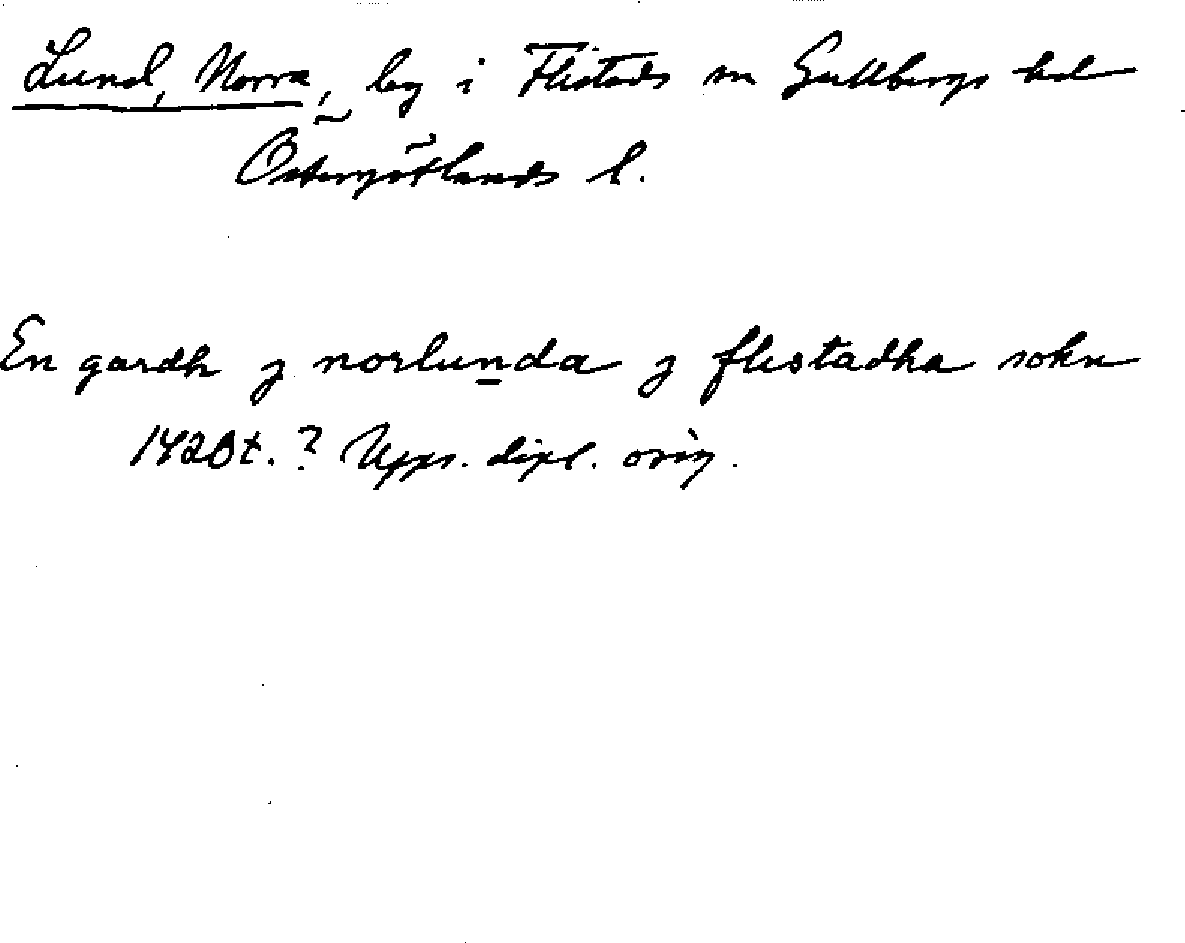 Lund, Norra, by i Flistads sn Gullbergs hd
Östergötlands l.
En gardh j norlunda j flistadha sokn
1420t. ? Upps. dipl. orig.